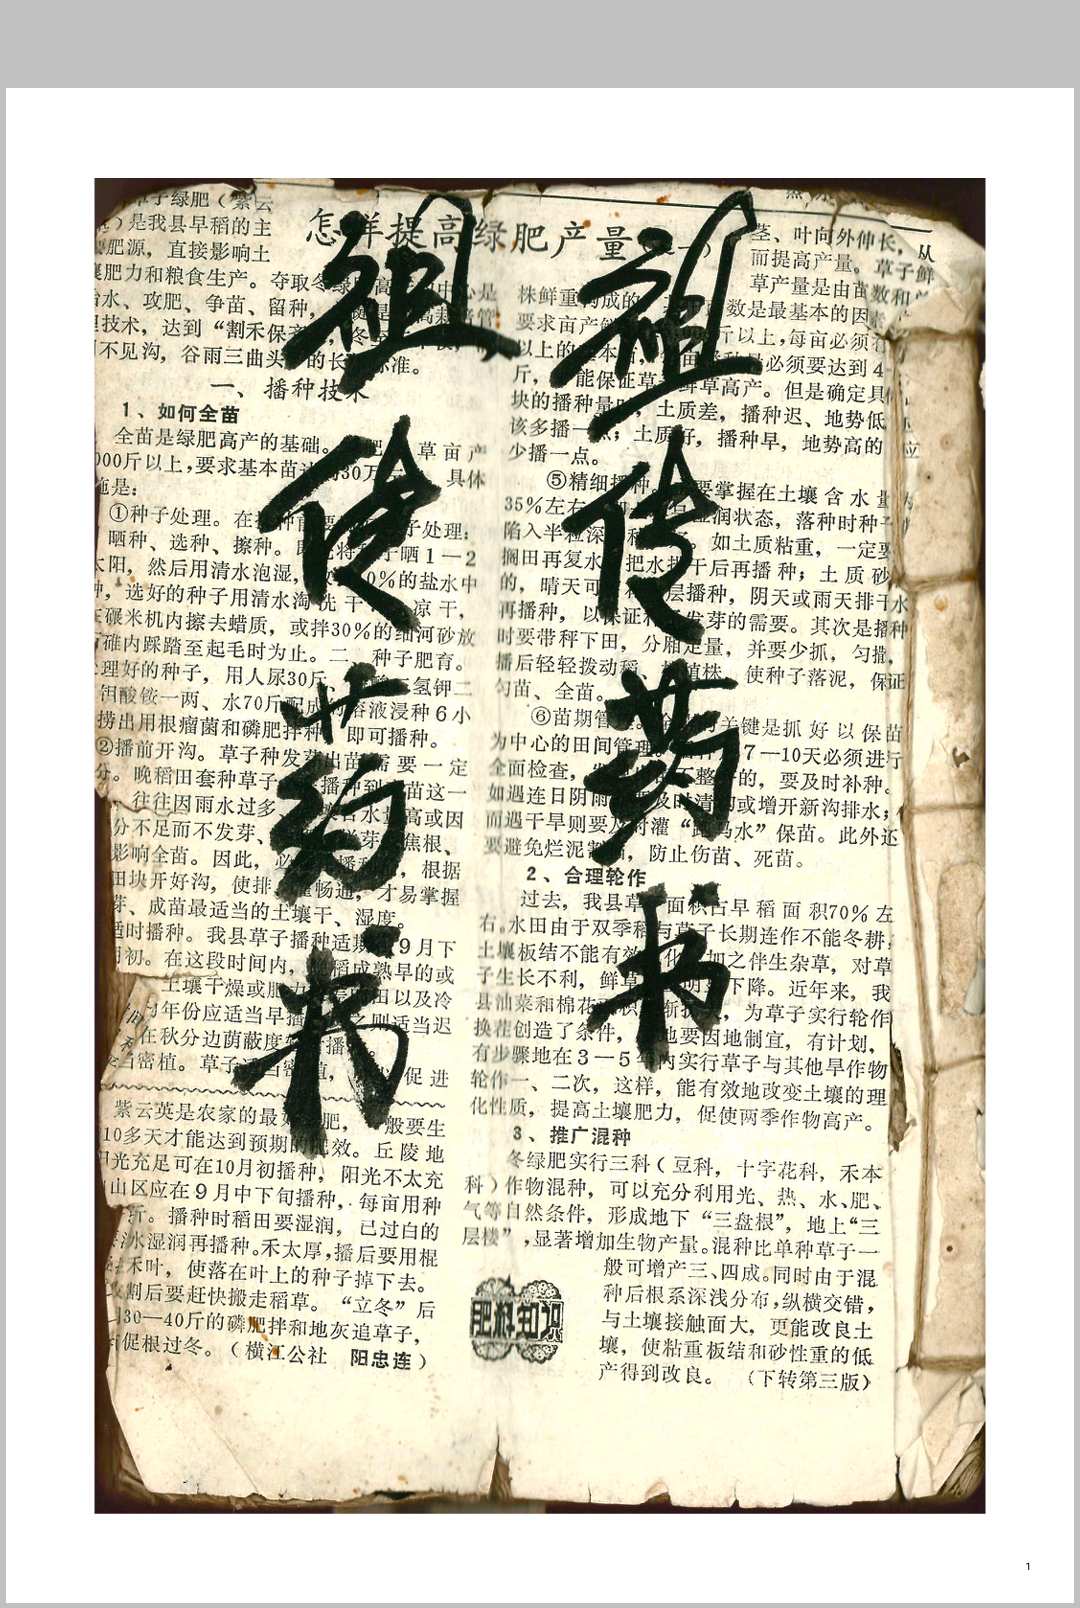 祖传药书
祖传药书
怎样提高绿肥产量
草子绿肥（紫云
）是我县早稻的主
肥源，直接影响土
壤肥力和粮食生产。夺取冬绿
治水、攻肥、争苗、留种，
技术，达到“割禾保
不见沟，谷雨三曲头 的长 标准。
一、播种技术
1、如何全苗
全苗是绿肥高产的基础。 草亩产
000斤以上，要求基本苗 30万 具体
施是：
①种子处理。在 种前 子处理：
晒种、选种、擦种。 将 子晒1—2
太阳，然后用清水泡湿， 0%的盐水中
种，选好的种子用清水淘洗干 凉干，
碾米机内擦去蜡质，或拌30%的细河砂放
碓内踩踏至起毛时为止。二、种子肥育。
理好的种子，用人尿30斤、 二氢钾二
钼酸铵一两、水70斤配成 溶液浸种6小
捞出用根瘤菌和磷肥拌种， 即可播种。
②播前开沟。草子种发芽出苗需要一定
分。晚稻田套种草子 播种到 苗这一
往往因雨水过多 水量高或因
分不足而不发芽、 芽 焦根、
影响全苗。因此，必 播种 ，根据
田块开好沟，使排 畅通，才易掌握
芽、成苗最适当的土壤干、湿度。
适时播种。我县草子播种适 9月下
月初。在这段时间内， 稻成熟早的或
土壤干燥或肥力 田以及冷
年份应适当早播 则适当迟
在秋分边荫蔽度 播
当密植。草子适当密植， 促进
紫云英是农家的最好 肥， 般要生
10多天才能达到预期的肥效。丘陵地
阳光充足可在10月初播种，阳光不太充
山区应在9月中下旬播种，每亩用种
斤。播种时稻田要湿润，已过白的
水湿润再播种。禾太厚，播后要用棍
禾叶，使落在叶上的种子掉下去。
割后要赶快搬走稻草。“立冬”后
30—40斤的磷肥拌和地灰追草子，
促根过冬。（横江公社 阳忠连）
茎、叶向外伸长，从
而提高产量。草子鲜
草产量是由苗数和
株鲜重构成的 数是最基本的因素
要求亩产鲜 斤以上，每亩必须有
以上的基本苗， 必须要达到4
斤， 能保证草子鲜草高产。但是确定具
块的播种量时，土质差，播种迟、地势低
该多播一点；土质好，播种早，地势高的应
少播一点。
⑤精细播种。 要掌握在土壤含水量
35%左右， 湿润状态，落种时种子
陷入半粒深 种 。如土质粘重，一定要
搁田再复水， 把水排干后再播种；土质砂
的，晴天可 层播种，阴天或雨天排干水
再播种，以保证种子发芽的需要。其次是播种
时要带秤下田，分厢定量，并要少抓，匀撒，
播后轻轻拨动稻 植株，使种子落泥，保证
匀苗、全苗。
⑥苗期管 关键是抓好以保苗
为中心的田间管理。 7—10天必须进行
全面检查， 不整 的，要及时补种。
如遇连日阴雨， 及时清沟或增开新沟排水；
而遇干旱则要及时灌“跑马水”保苗。此外还
要避免烂泥 苗，防止伤苗、死苗。
2、合理轮作
过去，我县草子面积占早稻面积70%左
右。水田由于双季稻与草子长期连作不能冬耕，
土壤板结不能有效 化， 加之伴生杂草，对草
子生长不利，鲜草 明显下降。近年来，我
县油菜和棉花面积逐渐扩大，为草子实行轮作
换茬创造了条件， 地要因地制宜，有计划，
有步骤地在3—5年内实行草子与其他旱作物
轮作一、二次，这样，能有效地改变土壤的理
化性质，提高土壤肥力，促使两季作物高产。
3、推广混种
冬绿肥实行三科（豆科，十字花科，禾本
科）作物混种，可以充分利用光、热、水、肥、
气等自然条件，形成地下“三盘根”，地上“三
层楼”，显著增加生物产量。混种比单种草子一
般可增产三、四成。同时由于混
种后根系深浅分布，纵横交错，
与土壤接触面大，更能改良土
壤，使粘重板结和砂性重的低
产得到改良。（下转第三版）
肥料知识
1